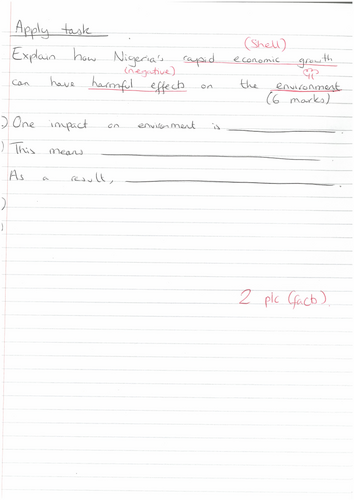 Apply task
(Shell)
Explain how Nigeria's rapid economic growth
(negative)
can have harmful effects on the environment
(6 marks)
) One impact on environment is
) This means
As a result,
)
)
2 plc (facts)